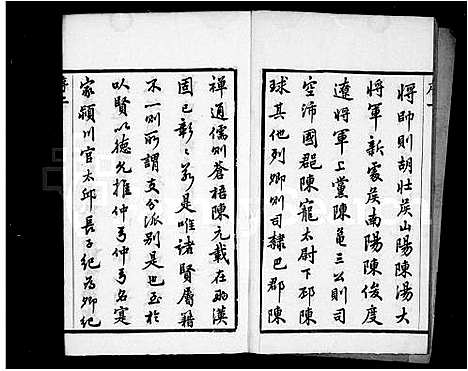 將帥則胡壯矦山陽陳湯大
將軍新處矦南陽陳俊度
遼將軍上黨陳龜三公則司
空沛國郡陳寵太尉下邳陳
球其他列卿則司隸巴郡陳
禪通儒則蒼梧陳元載在兩漢
固已彰〻若是唯諸賢屬籍
不一則所謂支分派別是也至於
以賢以德允推仲弓仲弓名寔
家潁川官太邱長子紀爲卿紀